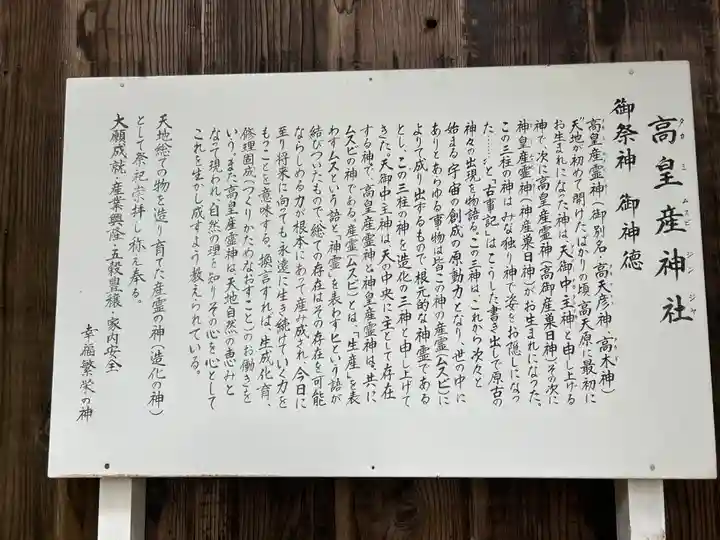 高皇産神社
タカミムスビジンジャ
御祭神 御神徳
高皇産霊神(御別名・高天彦神・高木神)
"天地が初めて開けたばかりの頃、高天原に最初に
お生まれになった神は、天御中主神と申し上げる
神で、次に高皇産霊神(高御産巣日神)その次に
神皇産霊神(神産巣日神)がお生まれになった、
この三柱の神はみな独り神で姿をお隠しになっ
た……"と「古事記」はこうした書き出しで原古の
神々の出現を物語る。この三神は、これから次々と
始まる宇宙の創成の原動力となり、世の中に
ありとあらゆる事物は皆この神の産霊(ムスビ)に
よりて成り出ずるもので、根元的な神霊である
とし、この三柱の神を造化の三神と申し上げて
きた、天御中主神は、天の中央に主として存在
する神で、高皇産霊神と神皇産霊神は、共に
ムスビの神である。産霊(ムスビ)とは、「生産」を表
わすムスという語と「神霊」を表わすヒという語が
結びついたもので、総ての存在はその存在を可能
ならしめる力が根本にあって産み成され、今日に
至り将来に向ても永遠に生き続けていく力を
もつことを意味する、換言すれば、生成化育、
修理固成(つくりかためなおすこと)のお働きを
いう、また高皇産霊神は天地自然の恵みと
なって現われ、自然の理を知りその心を心として
これを生かし成すよう教えられている。
天地総ての物を造り育てた産霊の神(造化の神)
として祭祀崇拝し称え奉る。
大願成就・産業興隆・五穀豊穣・家内安全
幸福繁栄の神